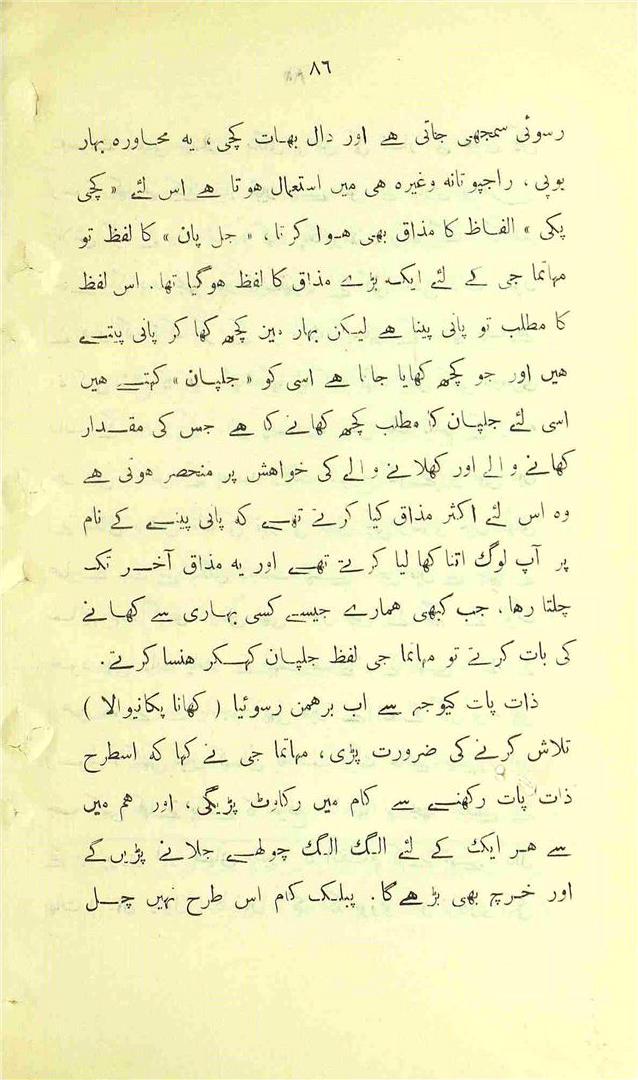 ۸٦
رسوئی سمجھی جاتی ھے اور دال بھات کچی ، یہ محاورہ بہار
یوپی ، راجپوتانہ وغیرہ ھی میں استعمال ھوتا ھے اس لئے « کچی
پکی » الفاظ کا مذاق بھی ھوا کرتا ، « جل پان » کا لفظ تو
مہاتما جی کے لئے ایک بڑے مذاق کا لفظ ھوگیا تھا . اس لفظ
کا مطلب تو پانی پینا ھے لیکن بہار میں کچھ کھا کر پانی پیتے
ھیں اور جو کچھ کھایا جاتا ھے اسی کو « جلپان » کہتے ھیں
اسی لئے جلپان کا مطلب کچھ کھانے کا ھے جس کی مقدار
کھانے والے اور کھلانے والے کی خواھش پر منحصر ھوتی ھے
وہ اس لئے اکثر مذاق کیا کرتے تھے کہ پانی پینے کے نام
پر آپ لوگ اتنا کھا لیا کرتے تھے اور یہ مذاق آخر تک
چلتا رھا . جب کبھی ھمارے جیسے کسی بہاری سے کھانے
کی بات کرتے تو مہاتما جی لفظ جلپان کہکر ھنسا کرتے .
ذات پات کیوجہ سے اب برھمن رسوئیا ( کھانا پکانیوالا )
تلاش کرنے کی ضرورت پڑی ، مہاتما جی نے کہا کہ اسطرح
ذات پات رکھنے سے کام میں رکاوٹ پڑیگی ، اور ھم میں
سے ھر ایک کے لئے الگ الگ چولھے جلانے پڑیں گے
اور خرچ بھی بڑھے گا . پبلک کام اس طرح نہیں چل